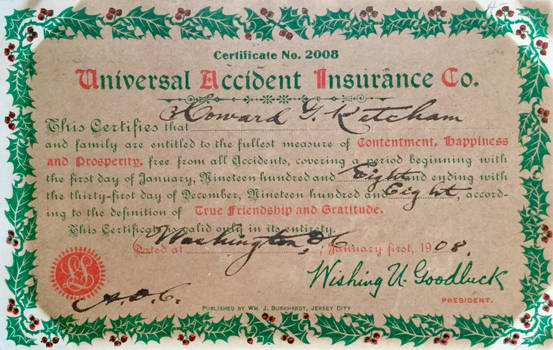 Certificate No. 2008
Universal Accident Insurance Co.
This Certifies that Howard G. Ketcham
and family are entitled to the fullest measure of Contentment, Happiness
and Prosperity, free from all Accidents, covering a period beginning with
the first day of January, Nineteen hundred and Eight and ending with
the thirty-first day of December, Nineteen hundred and Eight, accord-
ing to the definition of True Friendship and Gratitude.
This Certificate is valid only in its entirety.
Dated at Washington, D.C., January first, 1908.
Wishing U. Goodluck
PRESIDENT.
PUBLISHED BY WM. J. BURKHARDT, JERSEY CITY